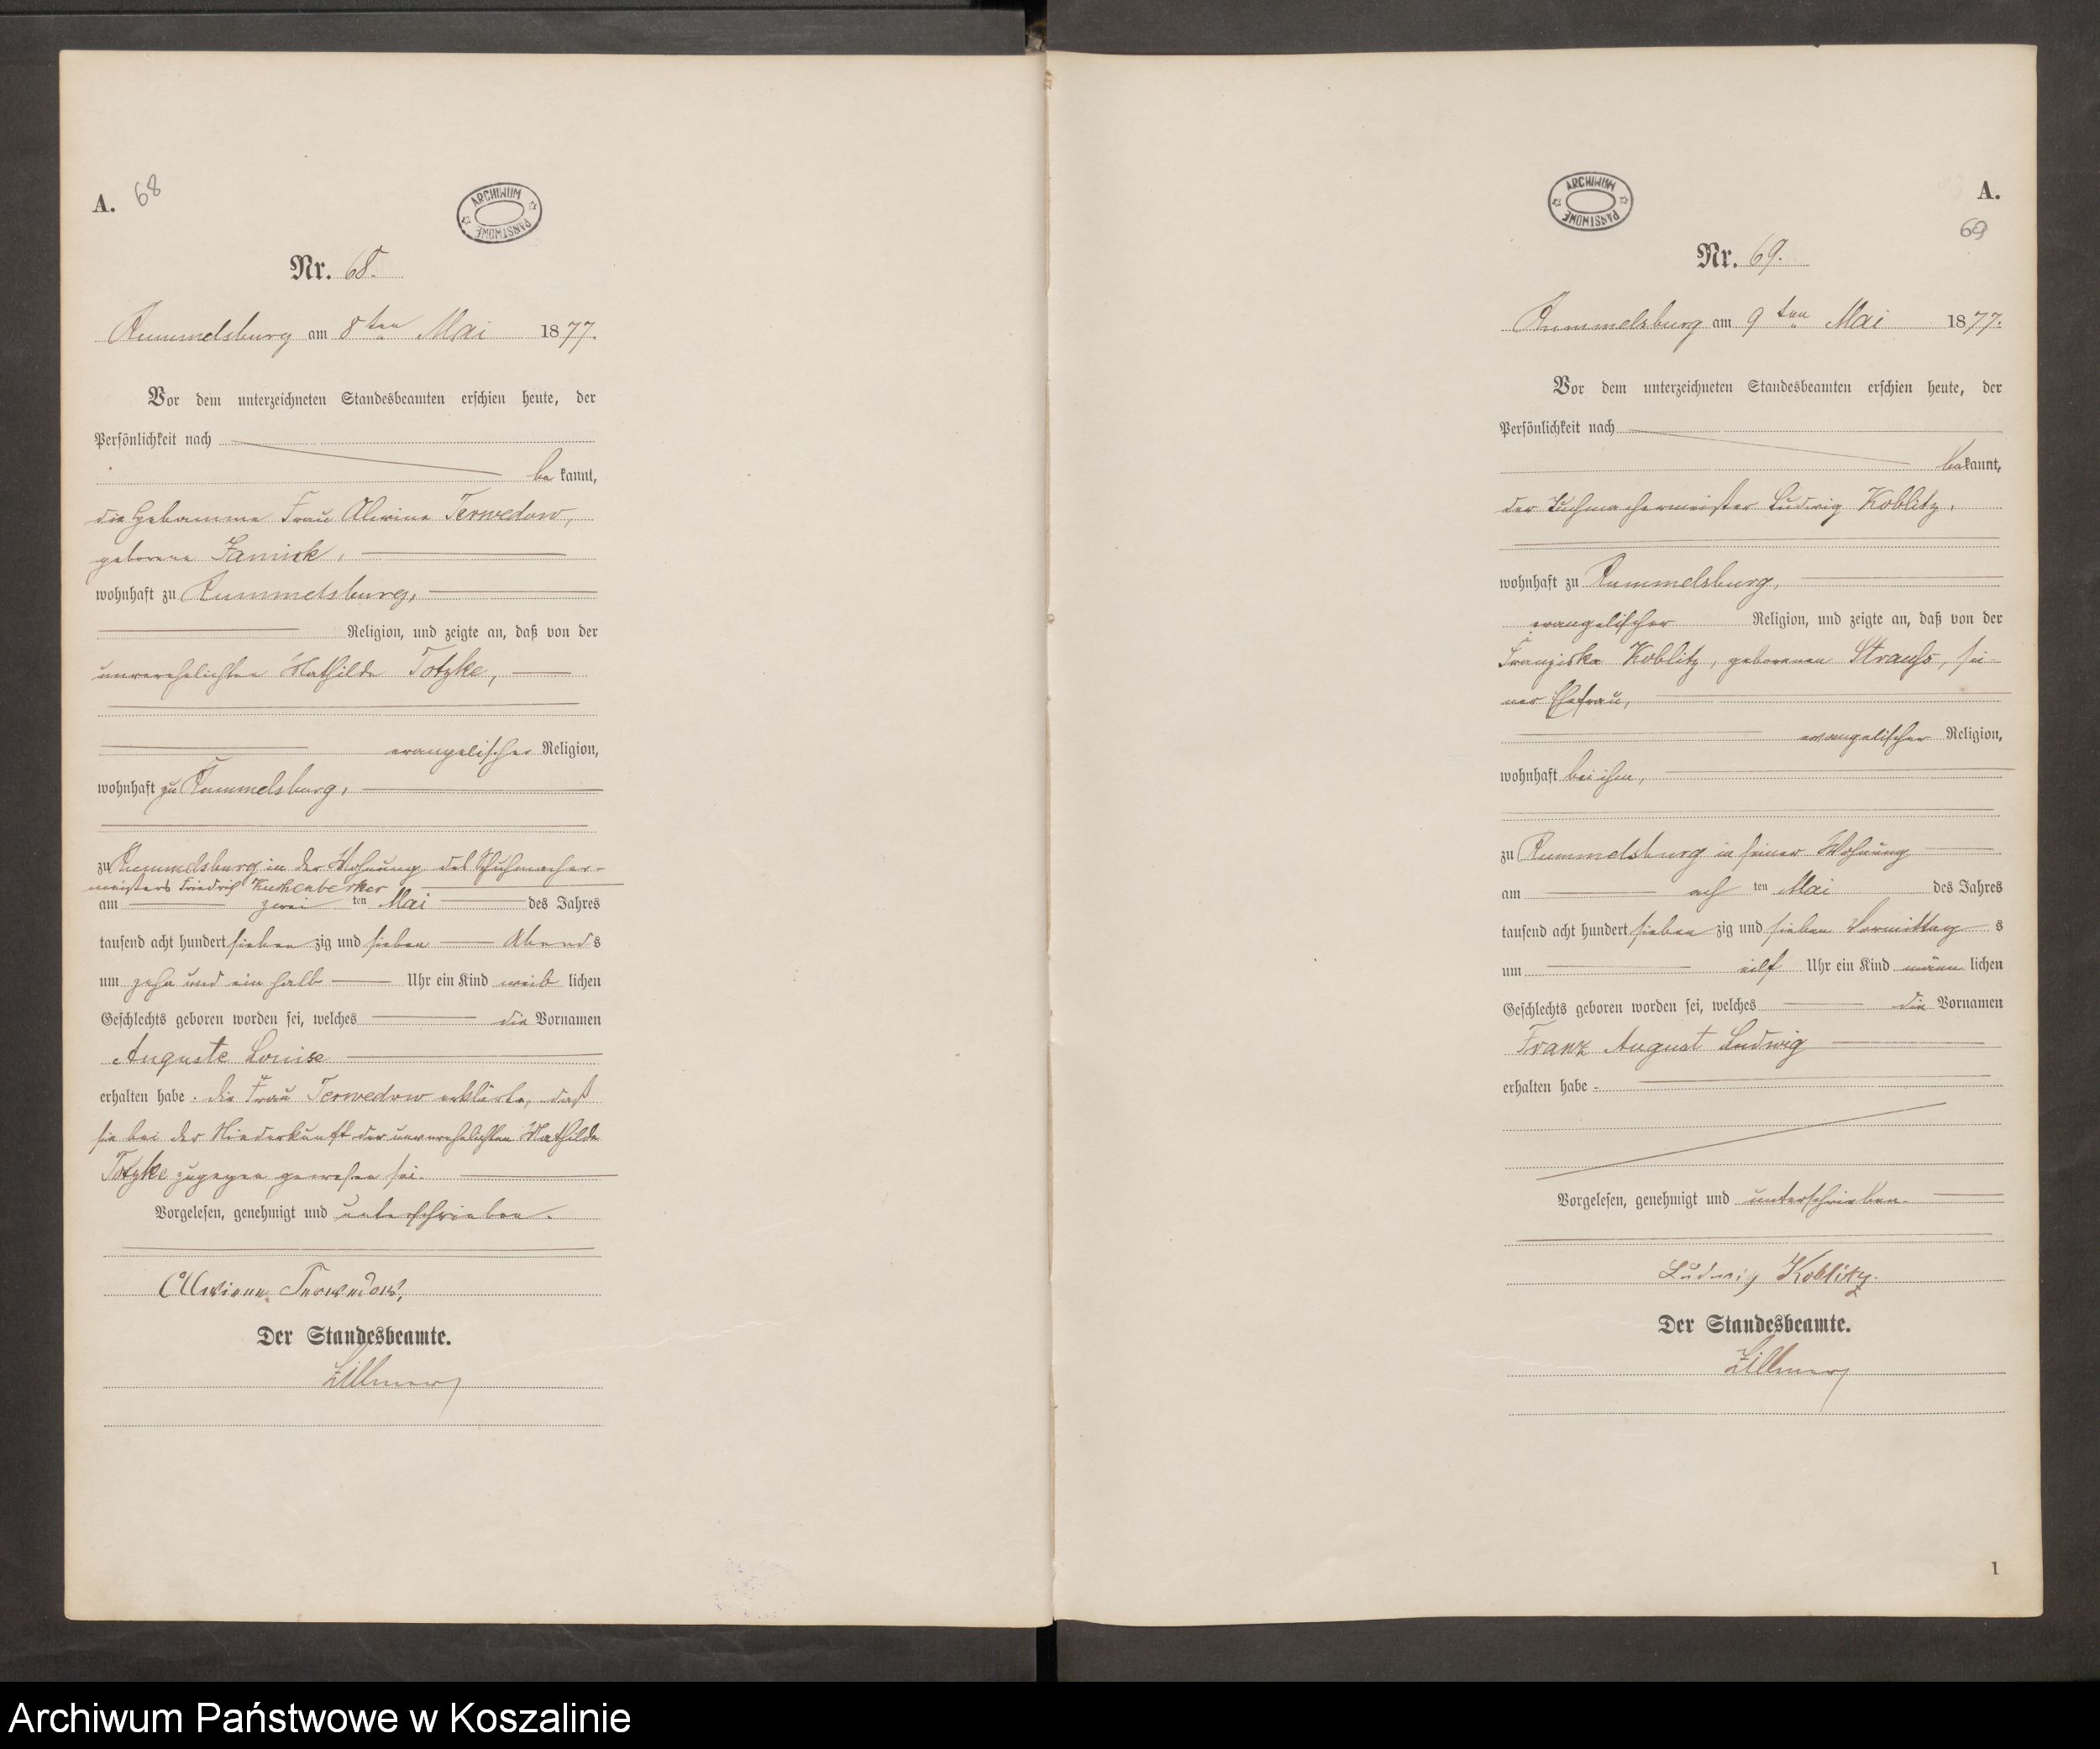 A. 68
ARCHIWUM PAŃSTWOWE
Nr. 68.
Rummelsburg am 8ten Mai 1877.
Vor dem unterzeichneten Standesbeamten erschien heute, der
Persönlichkeit nach
be kannt,
die Hebamme Frau Alwine Terwedow,
geborene
wohnhaft zu Rummelsburg,
Religion, und zeigte an, daß von der
unverehelichten Mathilde Totzke,
evangelischer Religion,
wohnhaft zu Rummelsburg,
zu Rummelsburg in der Wohnung des Schuhmacher-
meisters Friedrich
am zwei ten Mai des Jahres
tausend acht hundert sieben zig und sieben Abends
um zehn und ein halb Uhr ein Kind weib lichen
Geschlechts geboren worden sei, welches die Vornamen
Auguste Louise
erhalten habe. die Frau Terwedow erklärte, daß
sie bei der Niederkunft der unverehelichten Mathilde
Totzke zugegen gewesen sei.
Vorgelesen, genehmigt und unterschrieben.
Alwiene Terwedow,
Der Standesbeamte.
Zillmer
ARCHIWUM PAŃSTWOWE
A.
69
Nr. 69.
Rummelsburg am 9ten Mai 1877.
Vor dem unterzeichneten Standesbeamten erschien heute, der
Persönlichkeit nach
bekannt,
der Tuchmachermeister Ludwig Koblitz,
wohnhaft zu Rummelsburg,
evangelischer Religion, und zeigte an, daß von der
Franziska Koblitz, geborenen Strauß, sei-
ner Ehefrau,
evangelischer Religion,
wohnhaft bei ihm,
zu Rummelsburg in seiner Wohnung
am ach ten Mai des Jahres
tausend acht hundert sieben zig und sieben Vormittag s
um eilf Uhr ein Kind männ lichen
Geschlechts geboren worden sei, welches die Vornamen
Franz August Ludwig
erhalten habe.
Vorgelesen, genehmigt und unterschrieben.
Ludwig Koblitz.
Der Standesbeamte.
Zillmer
1
Archiwum Państwowe w Koszalinie